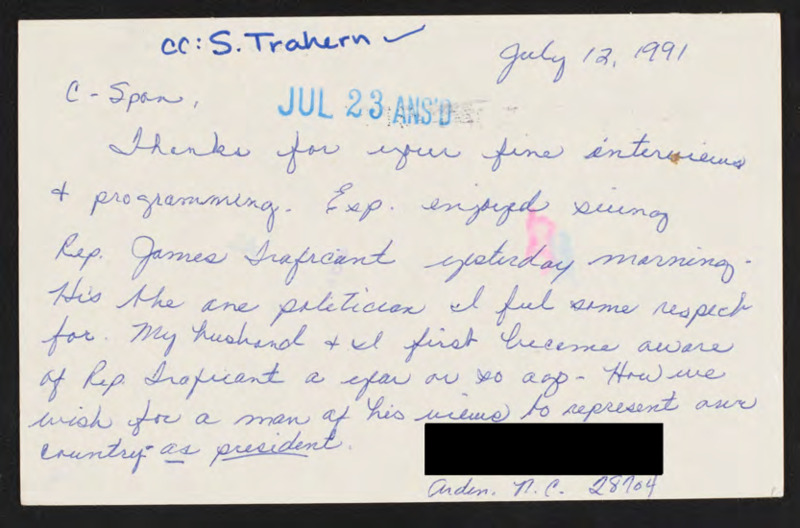 cc: S. Trahern ✓
July 12, 1991
C-Span,
JUL 23 ANS'D
Thanks for your fine interviews
& programming. Esp. enjoyed seeing
Rep. James Traficant yesterday morning-
His the one politician I feel some respect
for. My husband & I first became aware
of Rep. Traficant a year or so ago- How we
wish for a man of his views to represent our
country- as president.
Arden, N.C. 28704